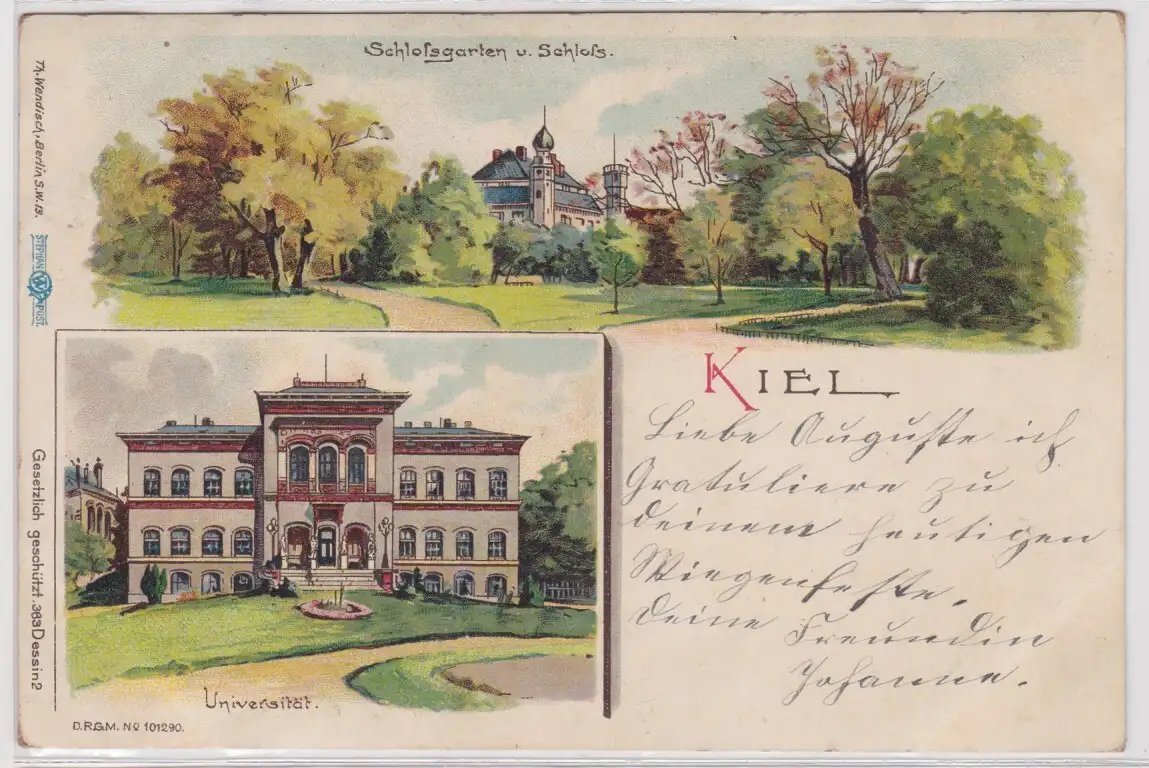 Schloſsgarten u. Schloſs.
Th. Wendisch, Berlin S.W. 13.
STEPHAN
W
POST.
KIEL
Liebe Auguste ich
Gratuliere zu
deinem heutigen
Wiegenfeste.
Deine Freundin
Johanne.
Gesetzlich geschützt. 363 Dessin 2
Universität.
D.R.G.M. No 101290.